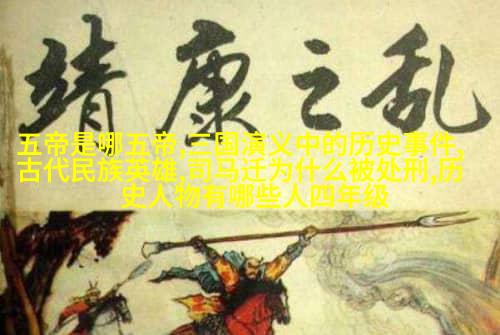 靖康之乱
五帝是哪五帝,三国演义中的历史事件,
古代民族英雄,司马迁为什么被处刑,历
史人物有哪些人四年级